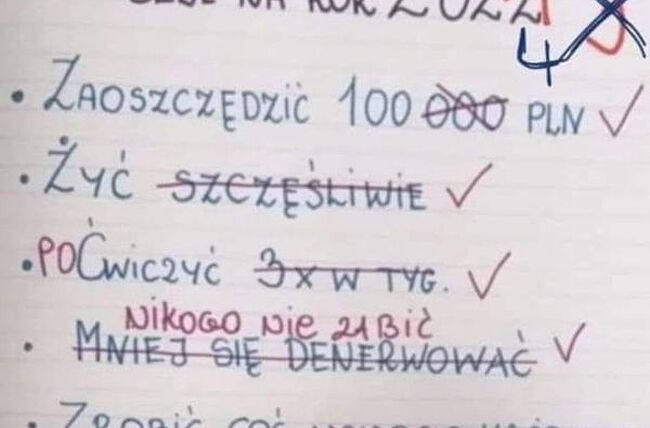 NA ROK 2022 4
• ZAOSZCZĘDZIĆ 100 000 PLN ✓
• ŻYĆ SZCZĘŚLIWIE ✓
• POĆWICZYĆ 3 X W TYG. ✓
NIKOGO NIE ZABIĆ
• MNIEJ SIĘ DENERWOWAĆ ✓
• ZROBIĆ COŚ